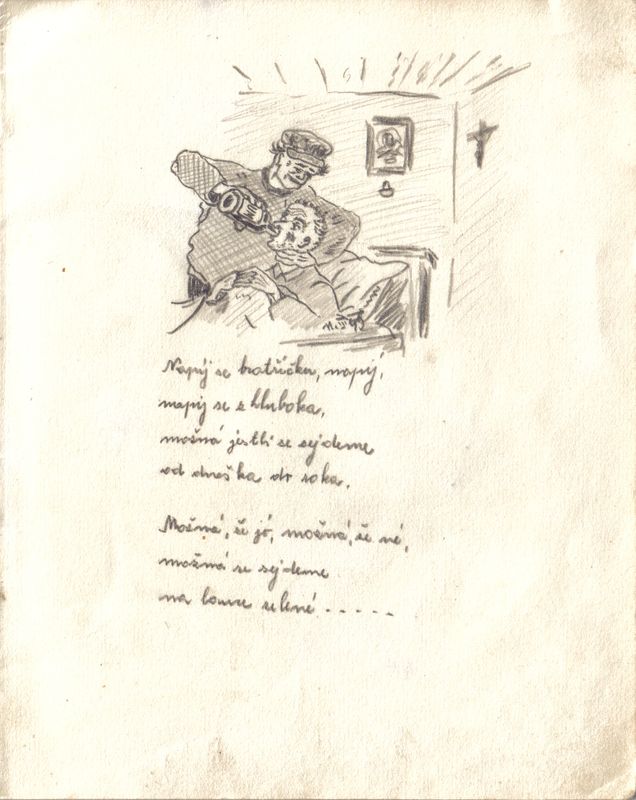 Napij se bratříčku, napij,
napij se z hluboka,
možná jestli se sejdeme
od dneška do roka.
Možná, že jó, možná, že né,
možná se sejdeme
na louce zelené - - - - -